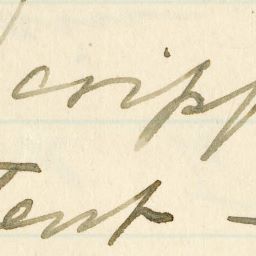 cripp
Tent -